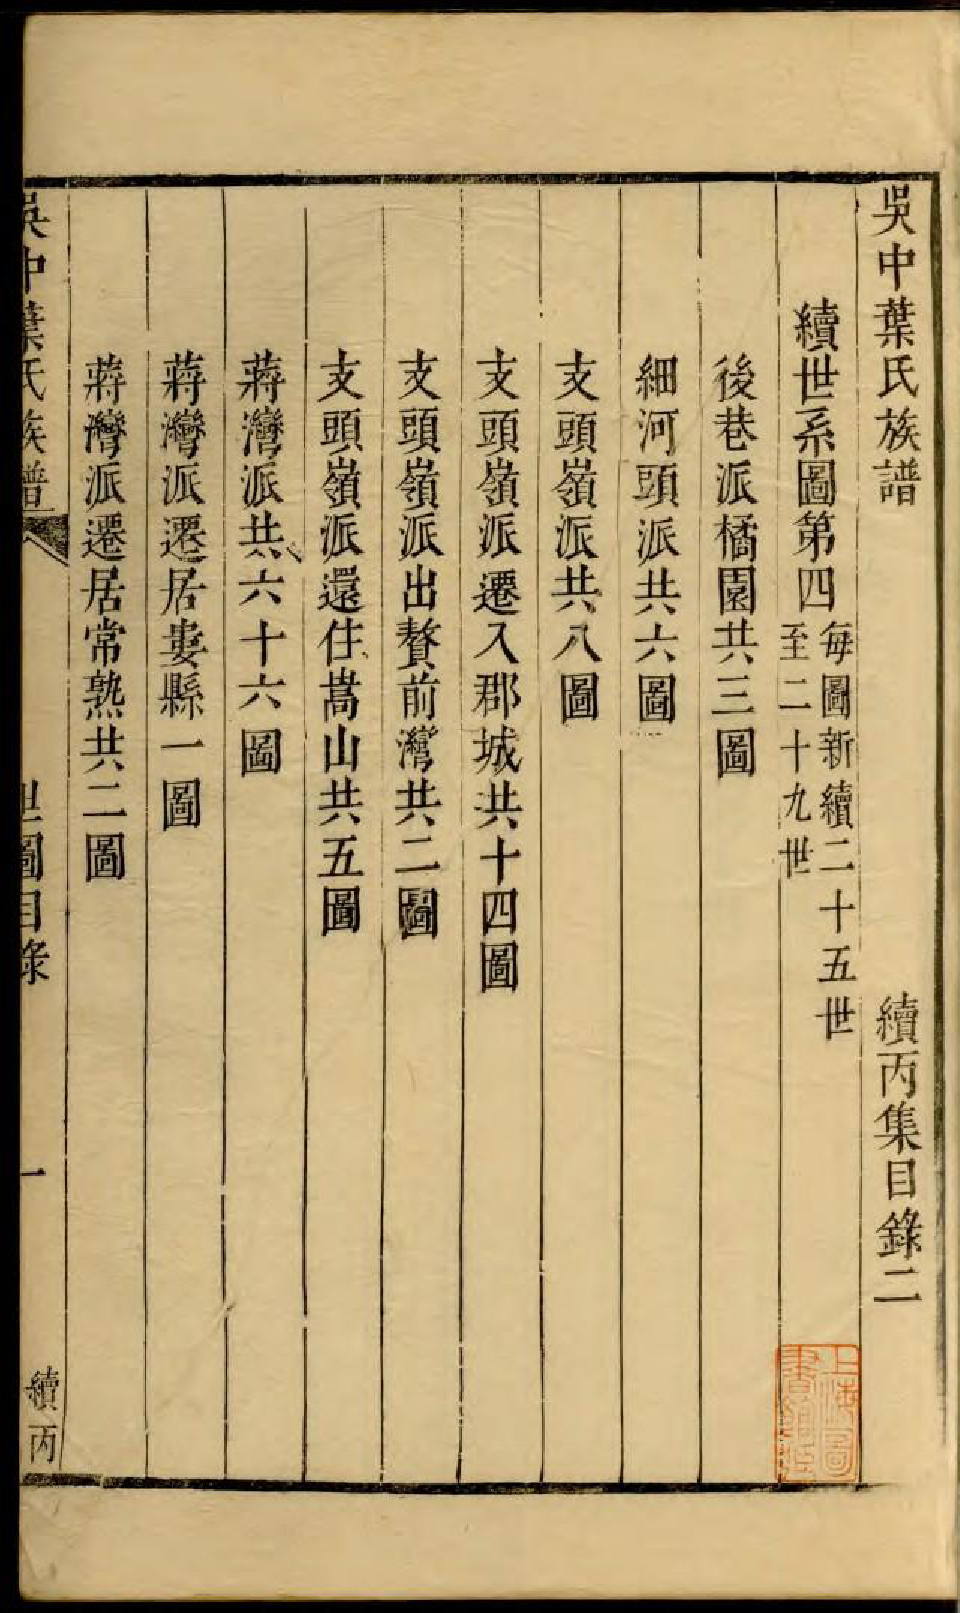 吳中葉氏族譜 續丙集目錄二
續世系圖第四 每圖新續二十五世
至二十九世
後巷派橘園共三圖
細河頭派共六圖
支頭嶺派共八圖
支頭嶺派遷入郡城共十四圖
支頭嶺派出贅前灣共二圖
支頭嶺派還住嵩山共五圖
蔣灣派共六十六圖
蔣灣派遷居婁縣一圖
蔣灣派遷居常熟共二圖
吳中葉氏族譜 世圖目錄 一 續丙
上海圖
書館藏